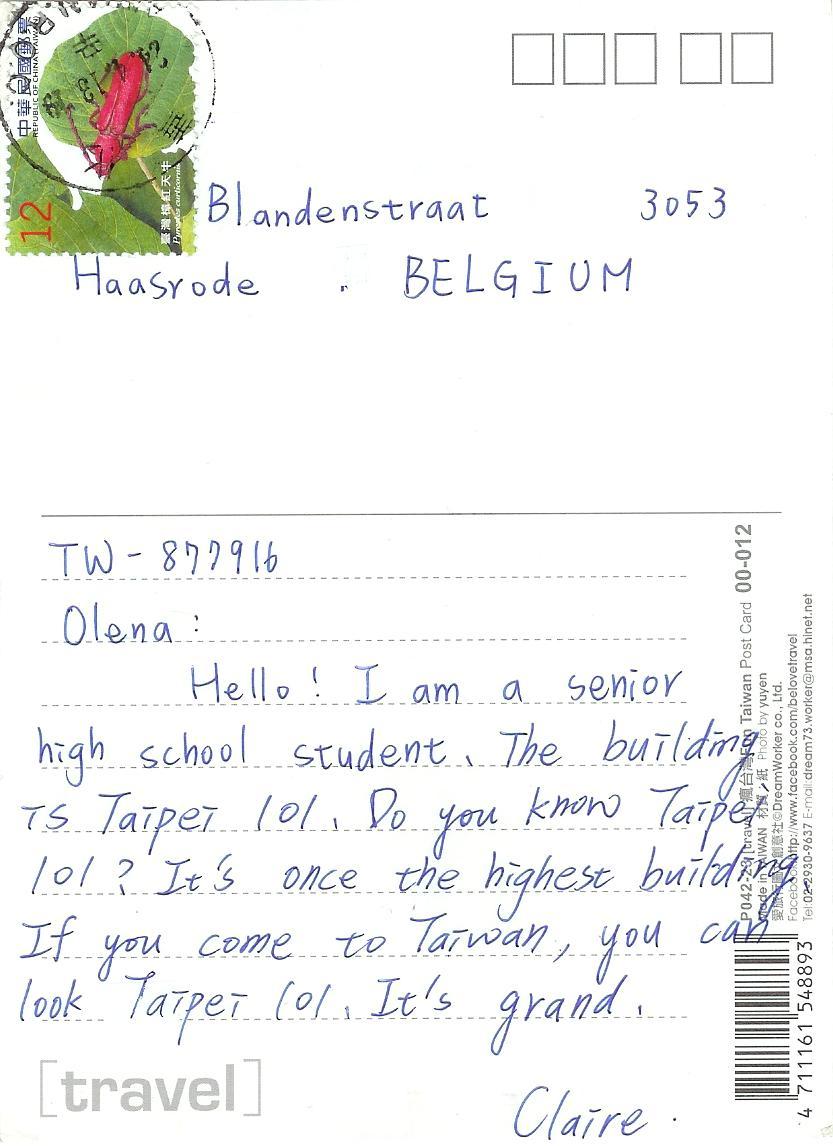 中華民國郵票
REPUBLIC OF CHINA (TAIWAN)
12
Pyrestes curticornis
Blandenstraat 3053
Haasrode . BELGIUM
TW-877916
Olena :
Hello! I am a senior
high school student. The building
is Taipei 101. Do you know Taipei
101? It's once the highest building
If you come to Taiwan, you can
look Taipei 101. It's grand.
Claire.
[travel]
Post Card 00-012
Made in TAIWAN 材質/紙 Photo by yuyen
©DreamWorker co., Ltd.
http://www.facebook.com/belovetravel
Tel:02-2930-9637 E-mail:dream73.worker@msa.hinet.net
4 711161 548893